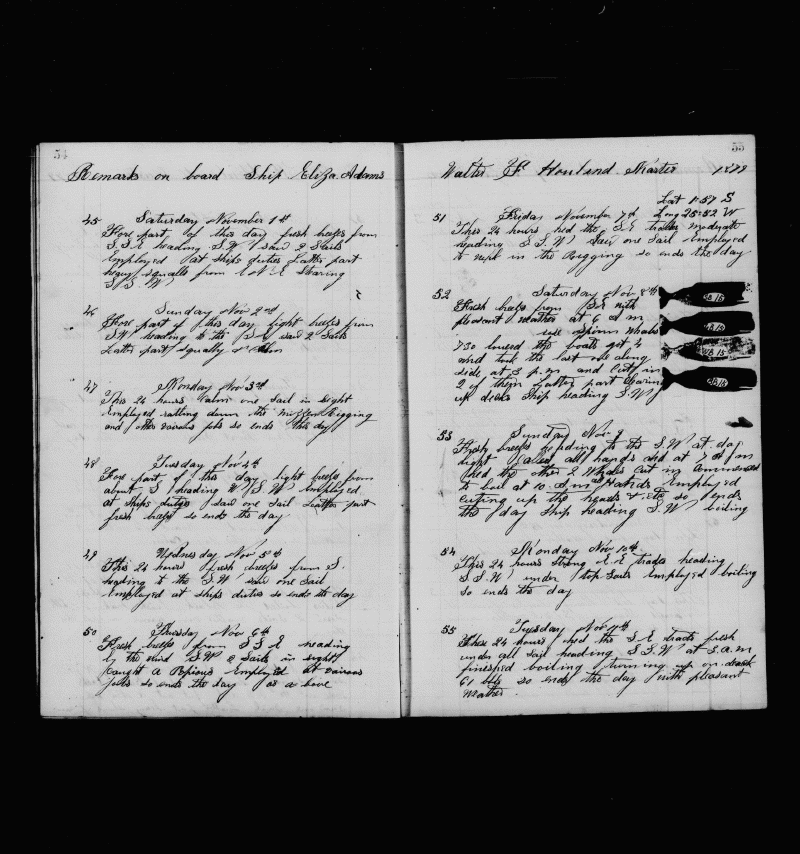 54
Remarks on board Ship Eliza Adams
45 Saturday November 1st
Fore part of this day fresh breeses from
S.S.E heading S.W saw 2 Sails
Employed at Ships duties Latter part
heavy squalls from E N E Stearing
S.S.W
46 Sunday Nov 2nd
Fore part of this day light breeses from
heading to the saw 2 Sails
Latter part squally &
47 Monday Nov 3rd
This 24 hours Calm one sail in sight
Employed ratling down the Mizzen Rigging
and other various jobs so ends this day
48 Tuesday Nov 4th
Fore part of this day light breeses from
about S heading W.S.W Employed
at Ships duties saw one Sail Latter part
fresh breeses so ends the day
49 Wednesday Nov 5th
This 24 hours fresh breeses from S.
heading to the S.W saw one Sail
Employed at ships duties so ends the day
50 Thursday Nov 6th
Fresh breeses from S S E heading
by the wind S.W. 2 Sails in sight
Caught a Employed at vairous
Jobs so ends the day as a bove
55
Walter F Howland Master 1879
Lat 1-57 S
51 Friday November 7th Long 25-52 W
This 24 hours had the S.E trades moderate
heading S.S.W saw one sail Employed
to work in the Rigging so ends the day
52 Saturday Nov 8th
Fresh breeses from with
pleasant weather at 6 A m
saw sperm whales
7 30 lowered the boats got 4
and took the last one along
side at 3 p.m and Cut in
2 of them Latter part Clearing
up decks Ship heading S.W
BB 15
BB 15
BB 15
BB 15
53 Sunday Nov 9
Fresh breeses heading to the S.W at day
light Called all hands and at 7 A m
had the other 2 Whales Cut in Commenced
to boil at 10 A.m all Hands Employed
Cutting up the heads & Etc so Ends
the day Ship heading S.W boiling
54 Monday Nov 10th
This 24 hours strong S.E trades heading
S.S.W under top Sails Employed boiling
so ends the day
55 Tuesday Nov 11th
These 24 hours had the S.E trades fresh
under all sail heading S.S.W at 5 A.m
finished boiling turning up on deck
61 bbls so ends the day with pleasant
weather